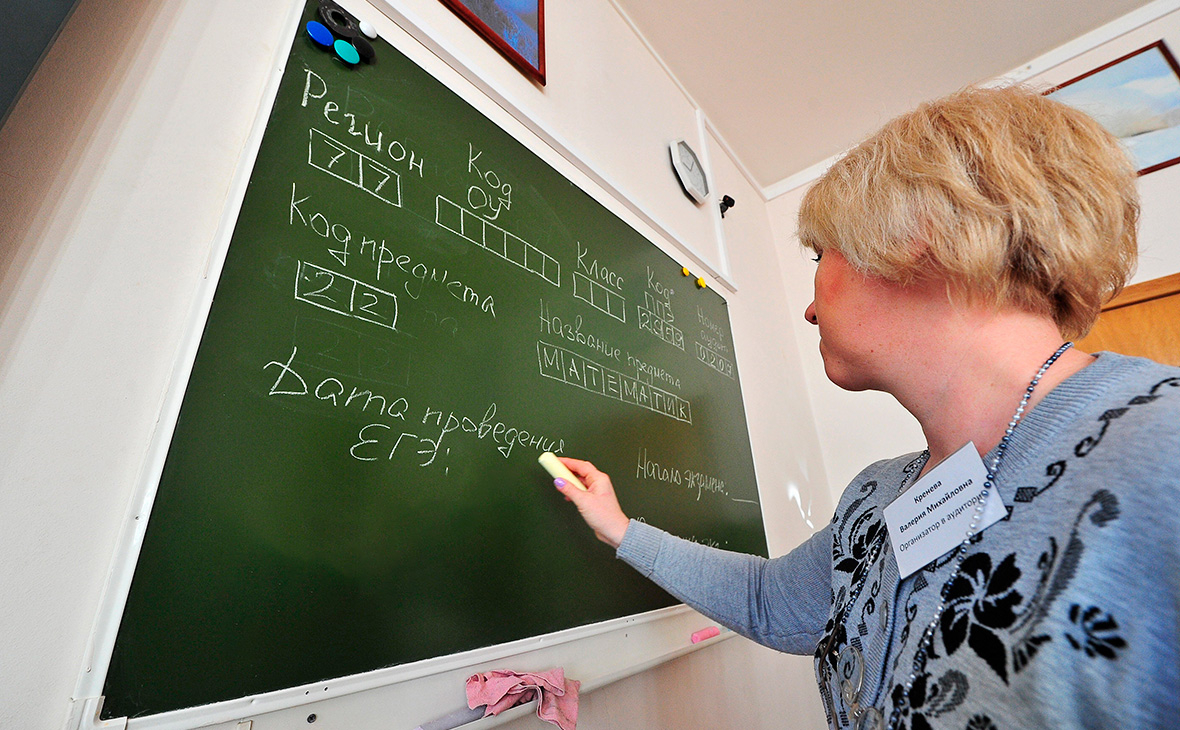 Регион
77
Код
ОУ
Класс
Код
ППЭ
Номер
аудит.
0207
Код предмета
22
Название предмета
МАТЕМАТИК
Дата проведения
ЕГЭ:
Начало экзамена.
Кренева
Валерия Михайловна
Организатор в аудитории